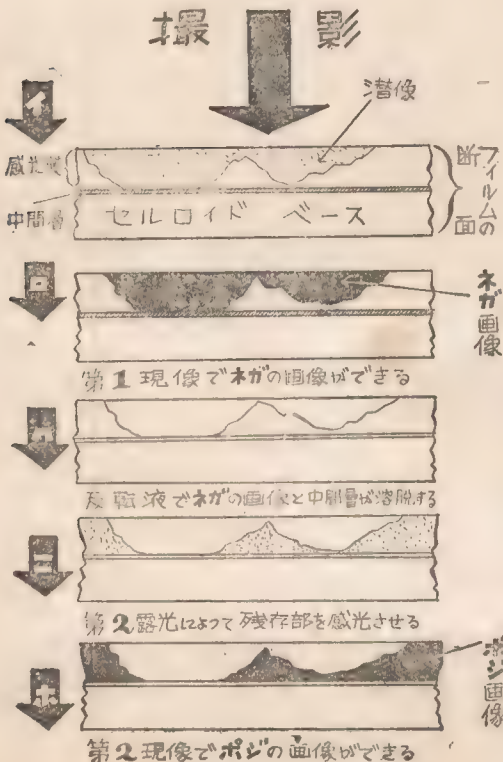 撮影
イ
潜像
感光膜
中間層
セルロイド ベース
フイルムの断面
ロ
ネガ画像
第1現像でネガの画像ができる
ハ
反転液でネガの画像と中間層が溶脱する
ニ
第2露光によつて残存部を感光させる
ホ
ポジ画像
第2現像でポジの画像ができる